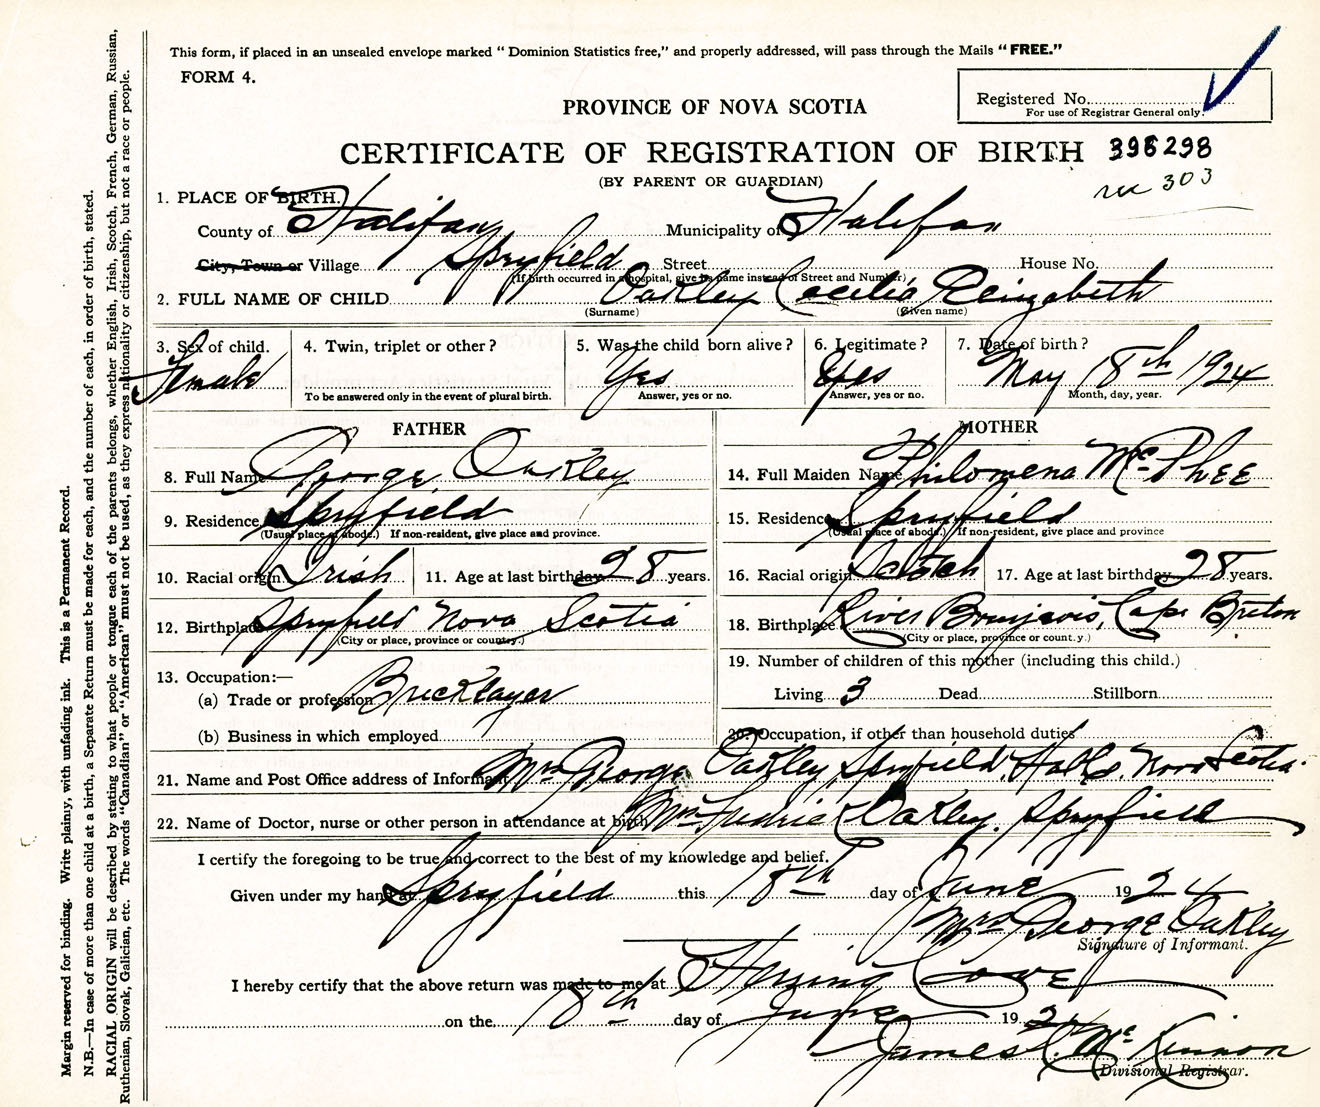 This form, if placed in an unsealed envelope marked " Dominion Statistics free," and properly addressed, will pass through the Mails " FREE."
FORM 4.
Registered No.
For use of Registrar General only.
PROVINCE OF NOVA SCOTIA
CERTIFICATE OF REGISTRATION OF BIRTH 396298
(BY PARENT OR GUARDIAN)
rec 303
1. PLACE OF BIRTH.
County of Halifax Municipality of Halifax
City, Town or Village Spryfield Street House No.
(If birth occurred in a hospital, give its name instead of Street and Number)
2. FULL NAME OF CHILD Oakley Cecilia Elizabeth
(Surname) (Given name)
3. Sex of child. 4. Twin, triplet or other ? 5. Was the child born alive ? 6. Legitimate ? 7. Date of birth ?
Female Yes Yes May 18th 1924
To be answered only in the event of plural birth. Answer, yes or no. Answer, yes or no. Month, day, year.
FATHER
8. Full Name George Oakley
9. Residence Spryfield
(Usual place of abode.) If non-resident, give place and province.
10. Racial origin Irish 11. Age at last birthday 28 years.
12. Birthplace Spryfield Nova Scotia
(City or place, province or country.)
13. Occupation:—
(a) Trade or profession Bricklayer
(b) Business in which employed
MOTHER
14. Full Maiden Name Philomena McPhee
15. Residence Spryfield
(Usual place of abode.) If non-resident, give place and province
16. Racial origin Scotch 17. Age at last birthday 28 years.
18. Birthplace River Bourjeois, Cape Breton
(City or place, province or count.y.)
19. Number of children of this mother (including this child.)
Living 3 Dead Stillborn
20. Occupation, if other than household duties
21. Name and Post Office address of Informant Mrs George Oakley Spryfield, Halifax, Nova Scotia
22. Name of Doctor, nurse or other person in attendance at birth Mrs Fredrick Oakley, Spryfield
I certify the foregoing to be true and correct to the best of my knowledge and belief.
Given under my hand at Spryfield this 18th day of June 1924
Mrs George Oakley
Signature of Informant.
I hereby certify that the above return was made to me at Herring Cove
on the 18th day of June 1924
James C. McKinnon
Divisional Registrar.
Margin reserved for binding. Write plainly, with unfading ink. This is a Permanent Record.
N.B.—In case of more than one child at a birth, a Separate Return must be made for each, and the number of each, in order of birth, stated.
RACIAL ORIGIN will be described by stating to what people or tongue each of the parents belongs, whether English, Irish, Scotch, French, German, Russian,
Ruthenian, Slovak, Galician, etc. The words "Canadian" or "American" must not be used, as they express nationality or citizenship, but not a race or people.